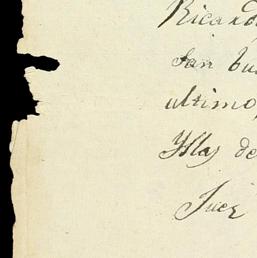 Ricard
San bu
ultimo,
Yslas de
Juez